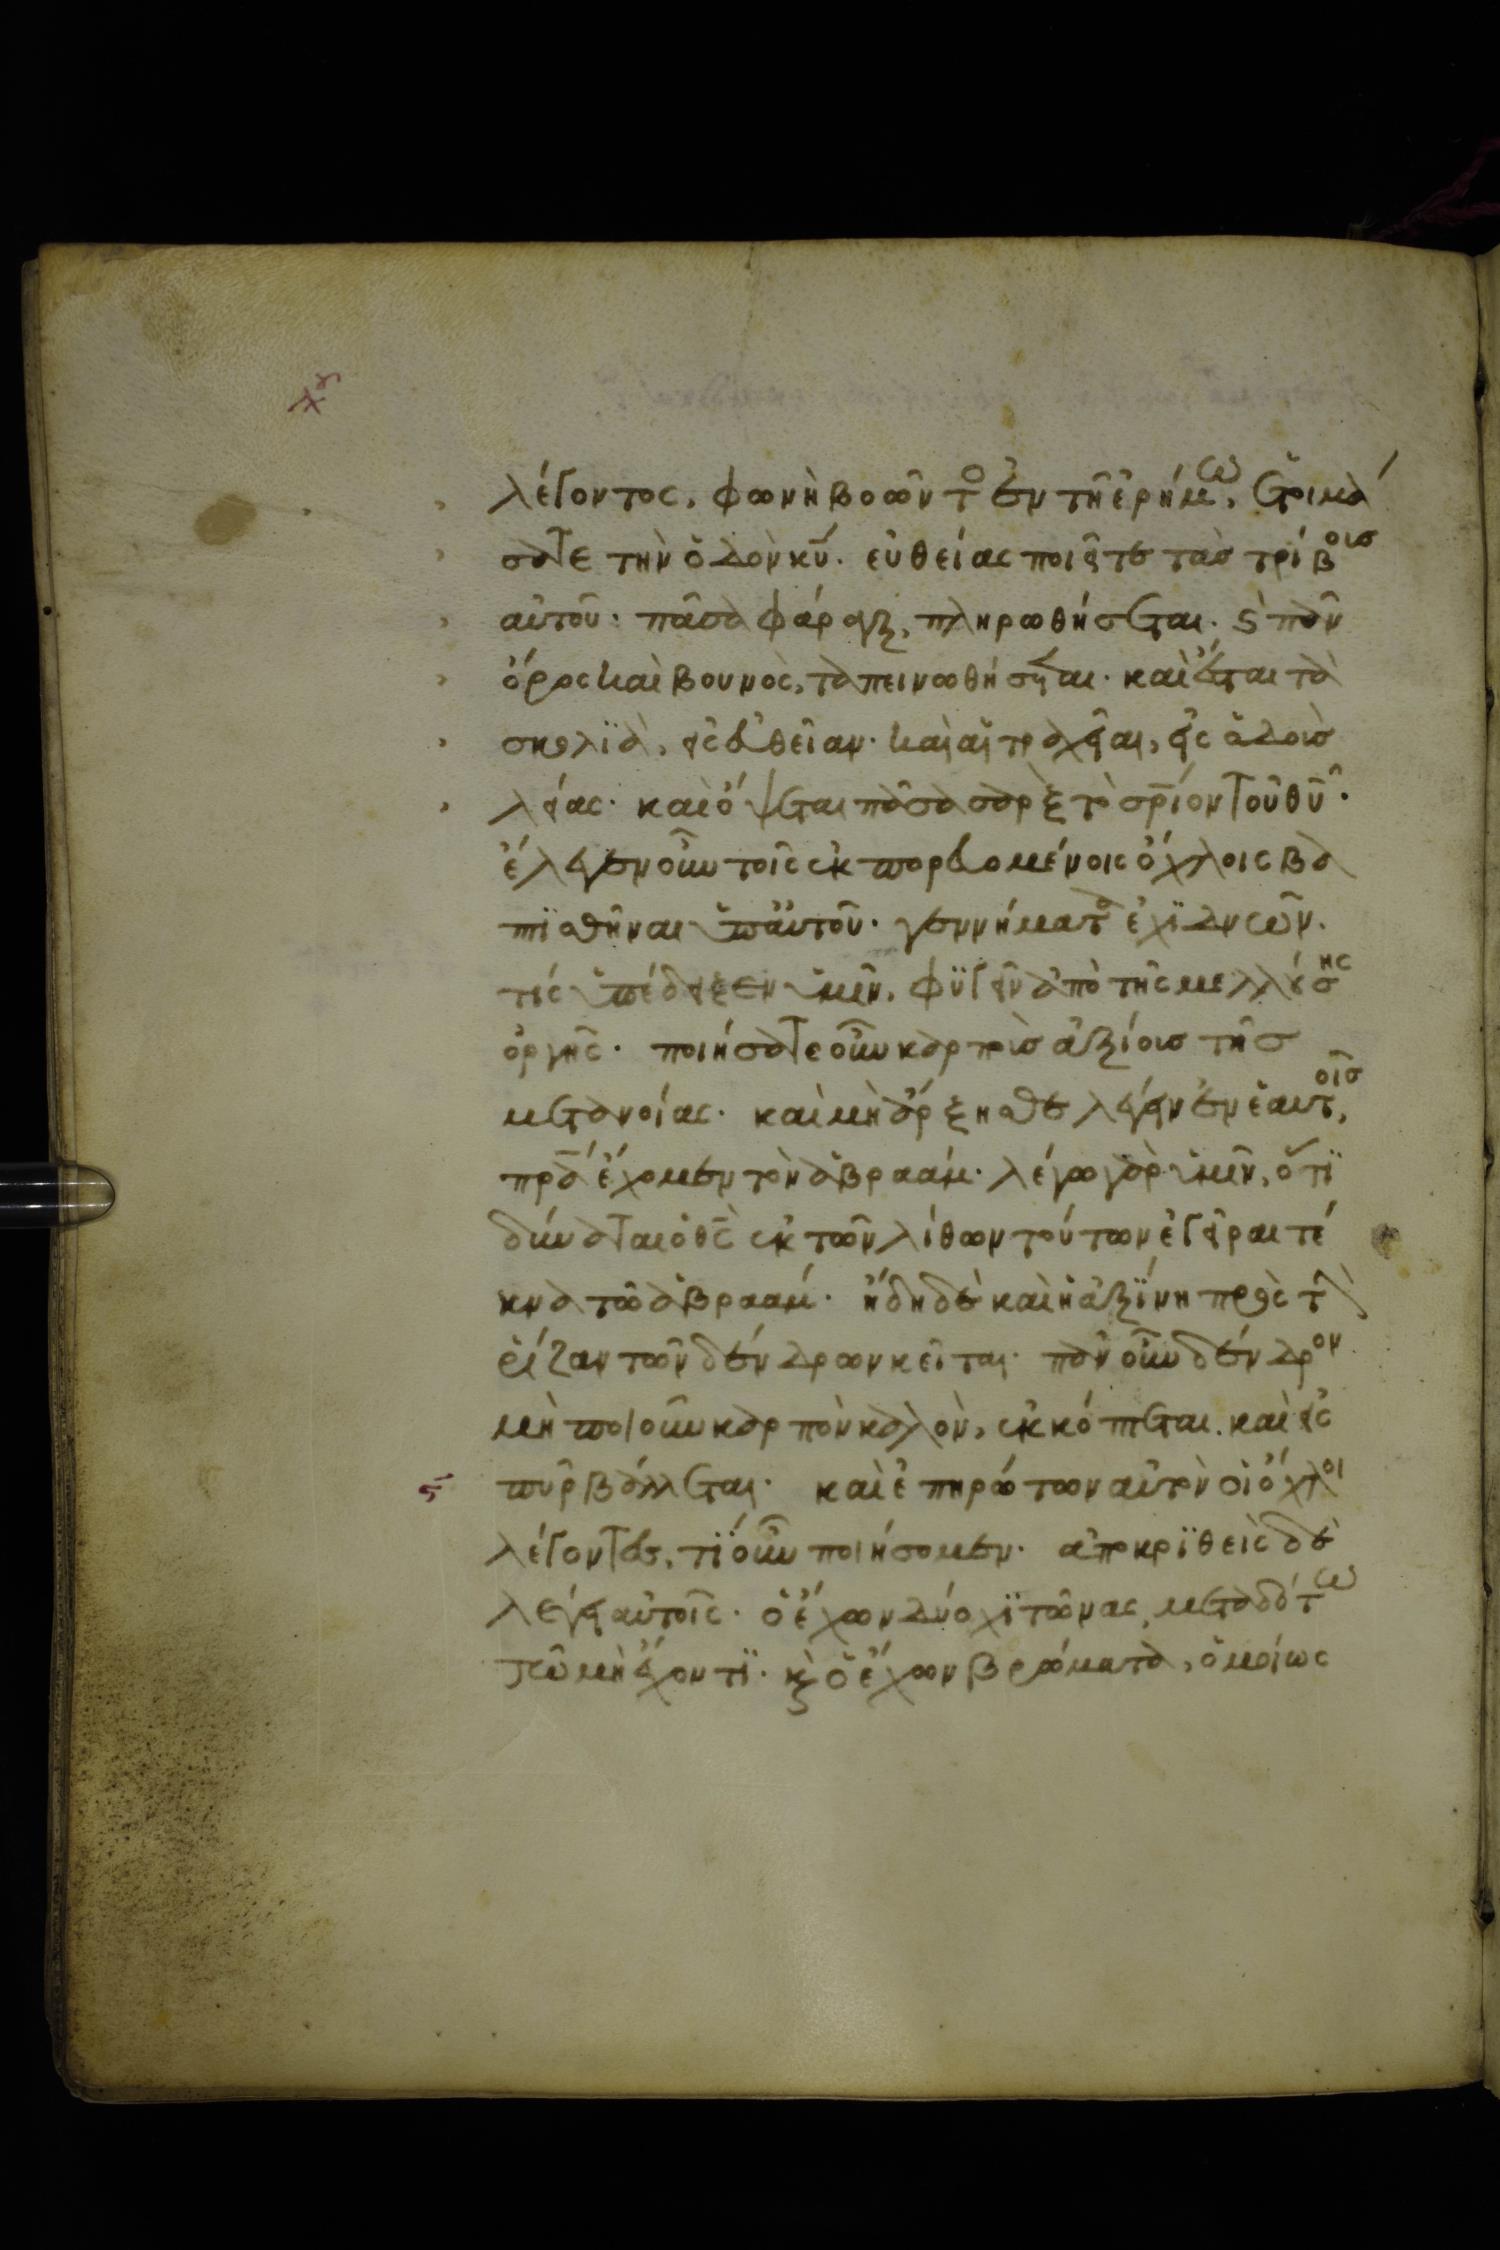 λέγοντος, φωνὴ βοῶντο ἐν τῆ ἐρήμω, ἑτοιμά
σατε τὴν ὁδὸν κυ. εὐθείας ποιεῖτε τὰσ τρίβουσ
αὐτοῦ· πᾶσα φάραγξ, πληρωθήσεται· ϛ πᾶν
ὄρος καὶ βουνὸς, ταπεινωθήσηται· καὶ ἔσται τὰ
σκολϊὰ, εἰς εὐθεῖαν· καὶ αἱ τραχεῖαι, εἰς ὁδοὺσ
λείας· καὶ ὄψεται πᾶσα σὰρξ τὸ σρίον τοῦ θυ·
ἔλεγεν οὖν τοῖς ἐκπορευομένοις ὄχλοις βα
πτϊσθῆναι ὑπ' αὐτοῦ· γεννήματα ἐχϊδνῶν.
τίς ὑπέδειξεν ὑμῖν, φϋγεῖν ἀπὸ τῆς μελλούσης
ὀργῆς· ποιήσατε οὖν καρποὺσ ἀξίουσ τῆσ
μετανοίας· καὶ μὴ ἄρξησθε λέγειν ἐν ἑαυτοῖσ,
πρα ἔχομεν τὸν ἀβραάμ· λέγω γὰρ ὑμῖν, ὅτϊ
δύναται ὁ θς ἐκ τῶν λίθων τούτων ἐγεῖραι τέ
κνα τῶ ἀβραάμ· ἤδη δὲ καὶ ἡ ἀξϊνη πρὸς τὴν
ῥίζαν τῶν δένδρων κεῖται· πᾶν οὖν δένδρον
μὴ ποιοῦν καρπὸν καλὸν, ἐκκόπτεται. καὶ εἰς
πῦρ βάλλεται· καὶ ἐπηρώτων αὐτὸν οἱ ὄχλοι
λέγοντες, τϊ οὖν ποιήσομεν· ἀποκρϊθεὶς δὲ
λέγει αὐτοῖς· ὁ ἔχων δύο χϊτῶνας, μεταδότω
τῶ μὴ ἔχοντϊ· κ ὁ ἔχων βρώματα, ὁμοίως